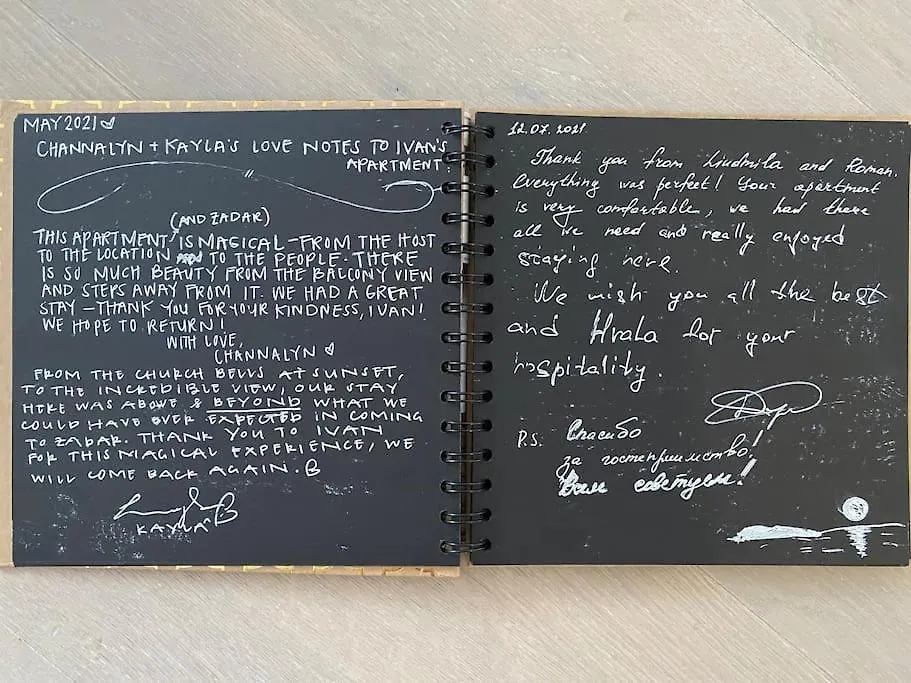 MAY 2021 ♡
CHANNALYN + KAYLA'S LOVE NOTES TO IVAN'S
APARTMENT:
(AND ZADAR)
THIS APARTMENT IS MAGICAL - FROM THE HOST
TO THE LOCATION TO THE PEOPLE. THERE
IS SO MUCH BEAUTY FROM THE BALCONY VIEW
AND STEPS AWAY FROM IT. WE HAD A GREAT
STAY - THANK YOU FOR YOUR KINDNESS, IVAN!
WE HOPE TO RETURN!
WITH LOVE,
CHANNALYN ♡
FROM THE CHURCH BELLS AT SUNSET,
TO THE INCREDIBLE VIEW, OUR STAY
HERE WAS ABOVE & BEYOND WHAT WE
COULD HAVE EVER EXPECTED IN COMING
TO ZADAR. THANK YOU TO IVAN
FOR THIS MAGICAL EXPERIENCE, WE
WILL COME BACK AGAIN.
KAYLA
12.07.2021
Thank you from Liudmila and Roman.
Everything was perfect! Your apartment
is very comfortable, we had there
all we need and really enjoyed
staying here.
We wish you all the best
and Hvala for your
hospitality.
P.S. Спасибо
за гостеприимство!
Вам советуем!